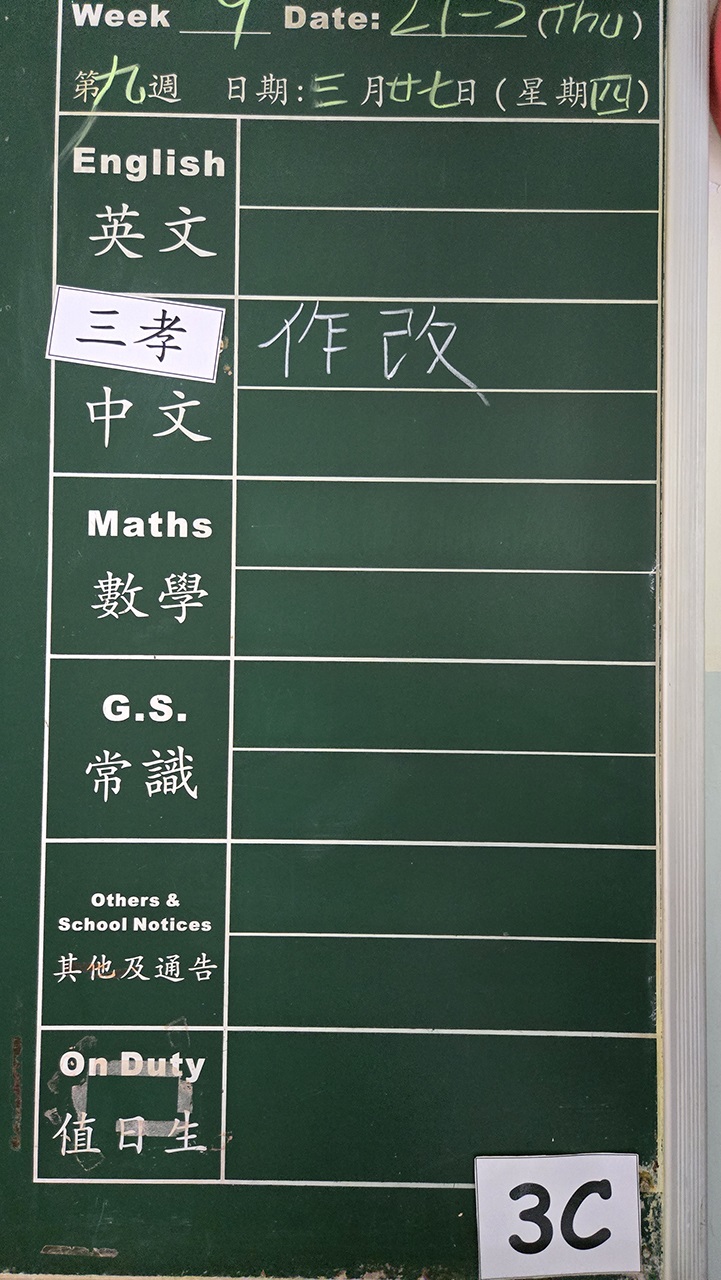 Week 9 Date: 27-3 (Thu)
第九週 日期: 三月廿七日 (星期四)
English
英文
三孝
作改
中文
Maths
數學
G.S.
常識
Others &
School Notices
其他及通告
On Duty
值日生
3C